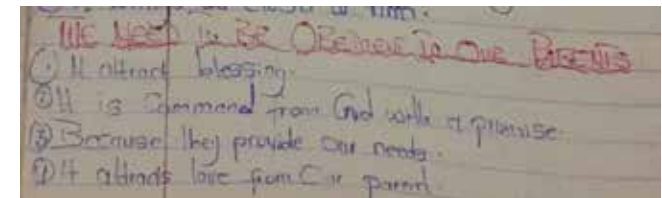 to him.
WE NEED To BE OBEDIENT To OUR PARENTS
① It attract blessing.
② It is Command from God with a promise.
③ Because they provide our needs.
④ It attracts love from Our parent.